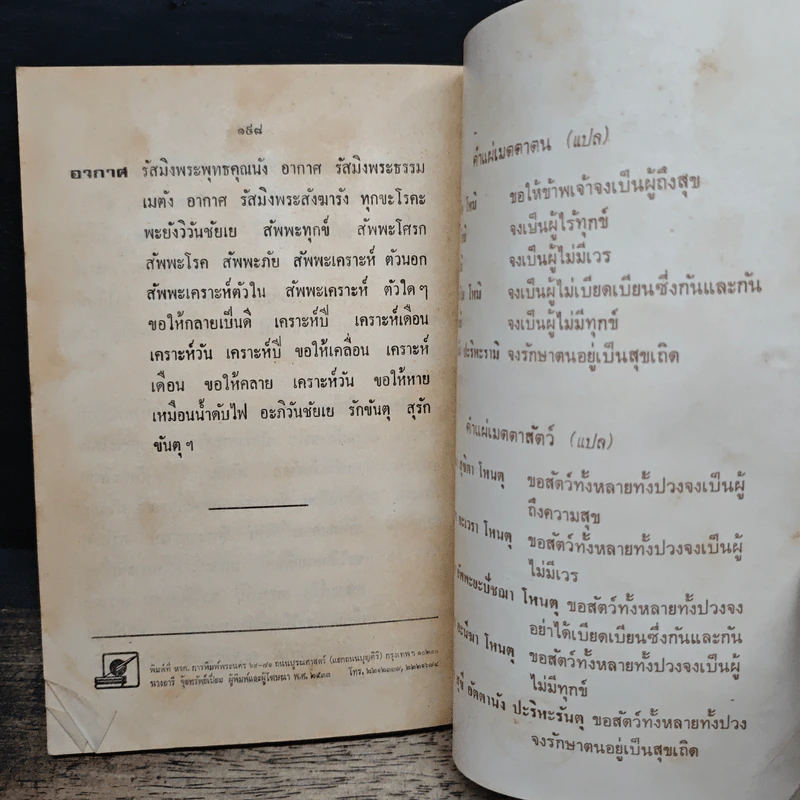 ๑๕๘
อวกาศ รัสมิงพระพุทธคุณนัง อากาศ รัสมิงพระธรรม
เมตัง อากาศ รัสมิงพระสังฆารัง ทุกขะโรคะ
พะยังวิวันชัยเย สัพพะทุกข์ สัพพะโศรก
สัพพะโรค สัพพะภัย สัพพะเคราะห์ ตัวนอก
สัพพะเคราะห์ตัวใน สัพพะเคราะห์ ตัวใดๆ
ขอให้กลายเป็นดี เคราะห์ปี เคราะห์เดือน
เคราะห์วัน เคราะห์ปี ขอให้เคลื่อน เคราะห์
เดือน ขอให้คลาย เคราะห์วัน ขอให้หาย
เหมือนน้ำดับไฟ อะภิวันชัยเย รักขันตุ สุรัก
ขันตุๆ
พิมพ์ที่ หจก. การพิมพ์พระนคร ๖๙-๗๑ ถนนบูรณศาสตร์ (แยกถนนบุญศิริ) กรุงเทพฯ ๑๐๒๐๐
ผู้พิมพ์และผู้โฆษณา พ.ศ. ๒๕๓๓ โทร.
คำแผ่เมตตาตน (แปล)
โหมิ ขอให้ข้าพเจ้าจงเป็นผู้ถึงสุข
จงเป็นผู้ไร้ทุกข์
จงเป็นผู้ไม่มีเวร
โหมิ จงเป็นผู้ไม่เบียดเบียนซึ่งกันและกัน
จงเป็นผู้ไม่มีทุกข์
ปะริหะรามิ จงรักษาตนอยู่เป็นสุขเถิด
คำแผ่เมตตาสัตว์ (แปล)
สุขิตา โหนตุ ขอสัตว์ทั้งหลายทั้งปวงจงเป็นผู้
ถึงความสุข
อะเวรา โหนตุ ขอสัตว์ทั้งหลายทั้งปวงจงเป็นผู้
ไม่มีเวร
โหนตุ ขอสัตว์ทั้งหลายทั้งปวงจง
อย่าได้เบียดเบียนซึ่งกันและกัน
อะนีฆา โหนตุ ขอสัตว์ทั้งหลายทั้งปวงจงเป็นผู้
ไม่มีทุกข์
อัตตานัง ปะริหะรันตุ ขอสัตว์ทั้งหลายทั้งปวง
จงรักษาตนอยู่เป็นสุขเถิด